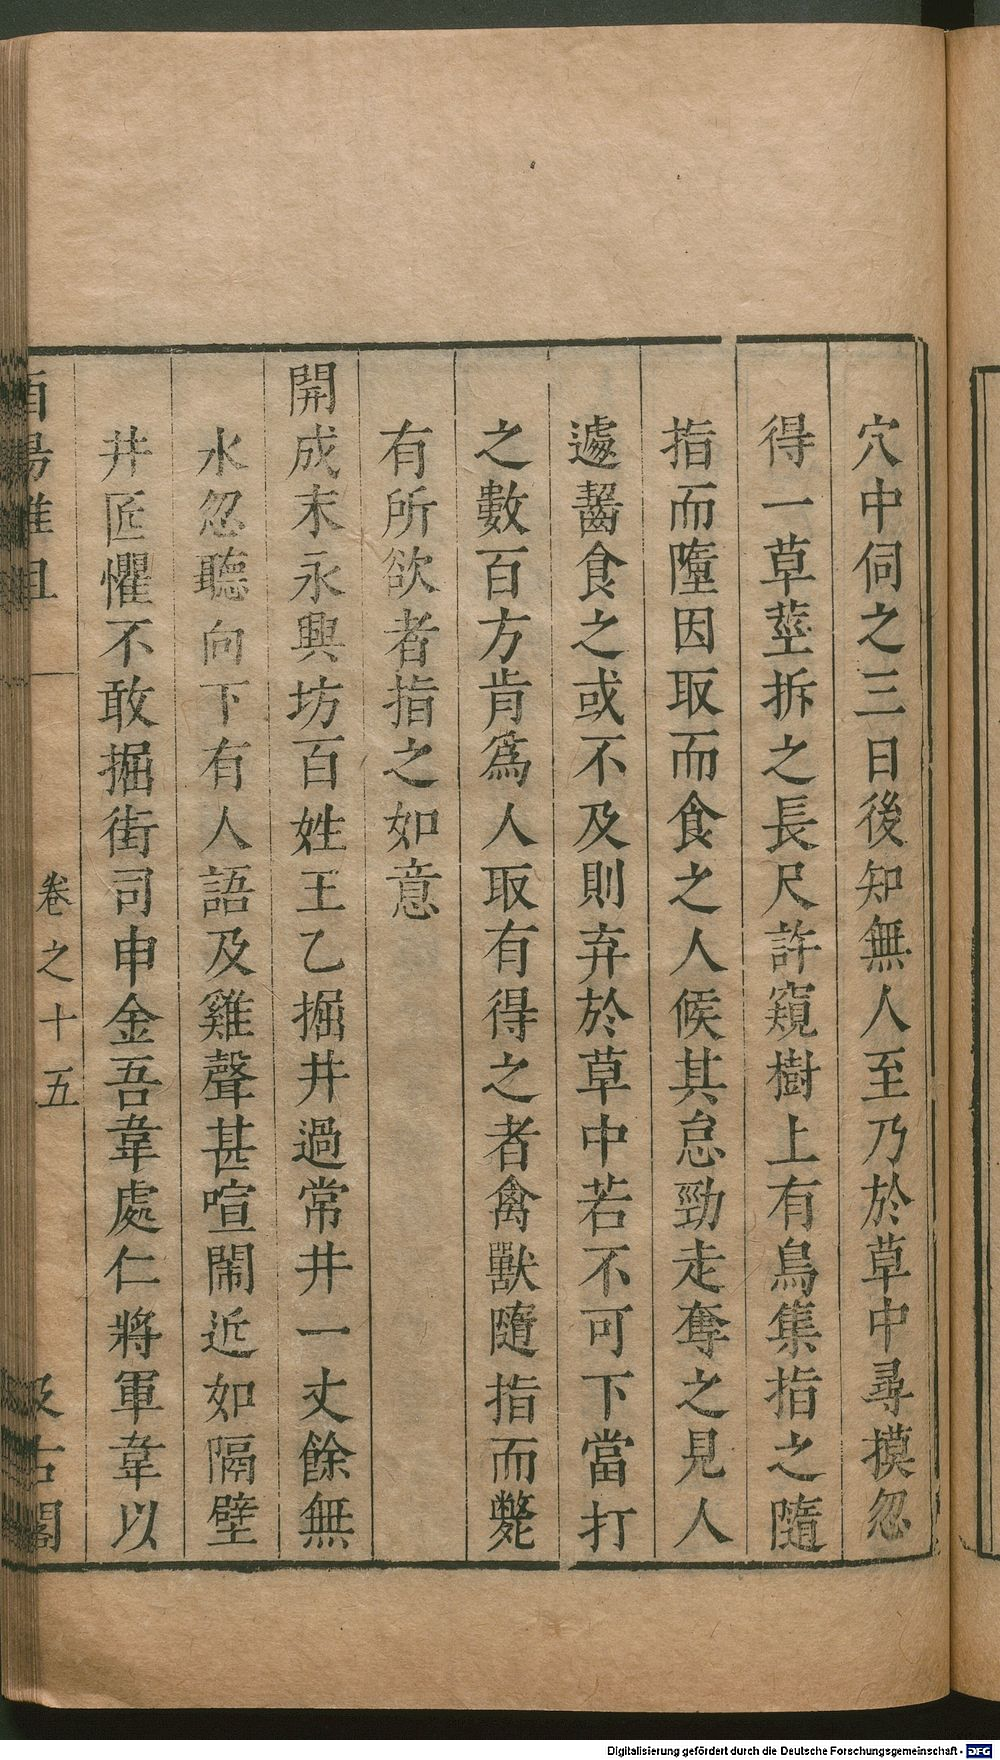 穴中伺之三日後知無人至乃於草中尋摸忽
得一草莖拆之長尺許窺樹上有鳥集指之隨
指而墮因取而食之人候其怠勁走奪之見人
遽齧食之或不及則弃於草中若不可下當打
之數百方肯爲人取有得之者禽獸隨指而斃
有所欲者指之如意
開成末永興坊百姓王乙掘井過常井一丈餘無
水忽聽向下有人語及雞聲甚喧鬧近如隔壁
井匠懼不敢掘街司申金吾韋處仁將軍韋以
酉陽雜俎 卷之十五 汲古閣
Digitalisierung gefördert durch die Deutsche Forschungsgemeinschaft - DFG